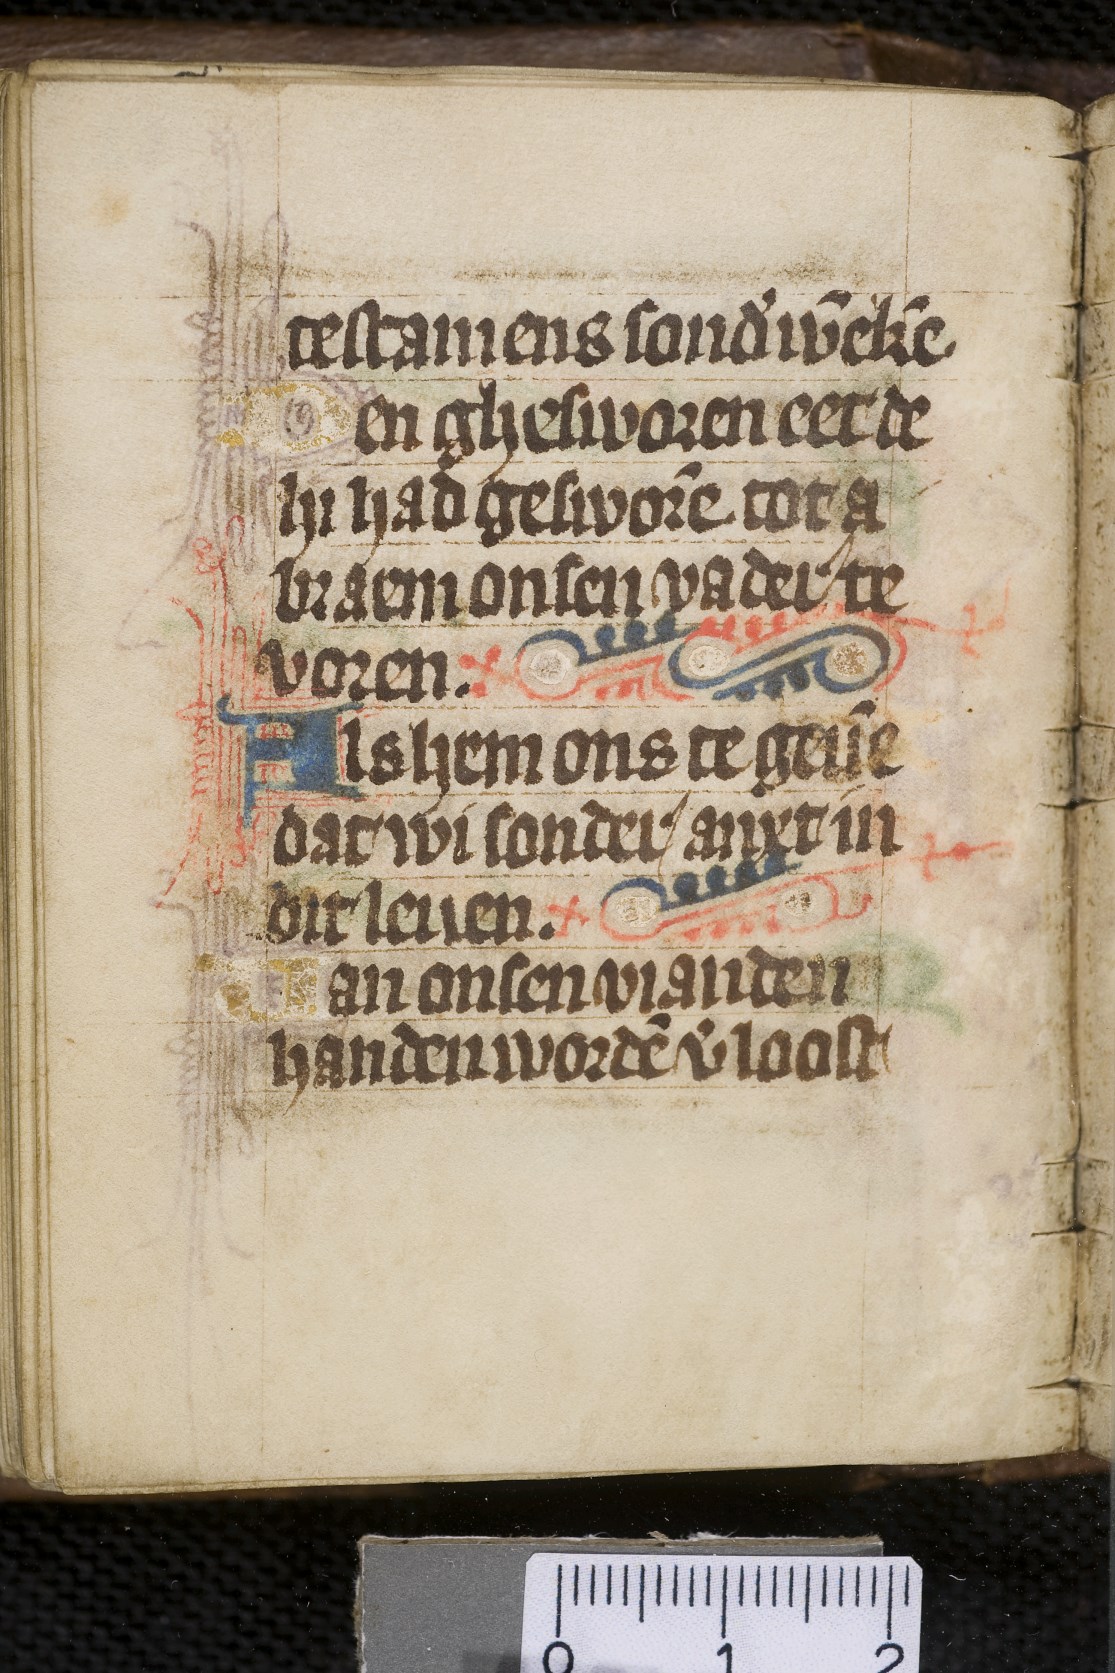 testamens sond' w̄ek̄e
en ghesworen eet de
hi had geswor̄e tot a
braem onsen vader te
voren.
Als hem ons te geu̅e
dat wi sonder anxt in
dit leuen.
Van onsen vianden
handen wordē v'loost
0 1 2